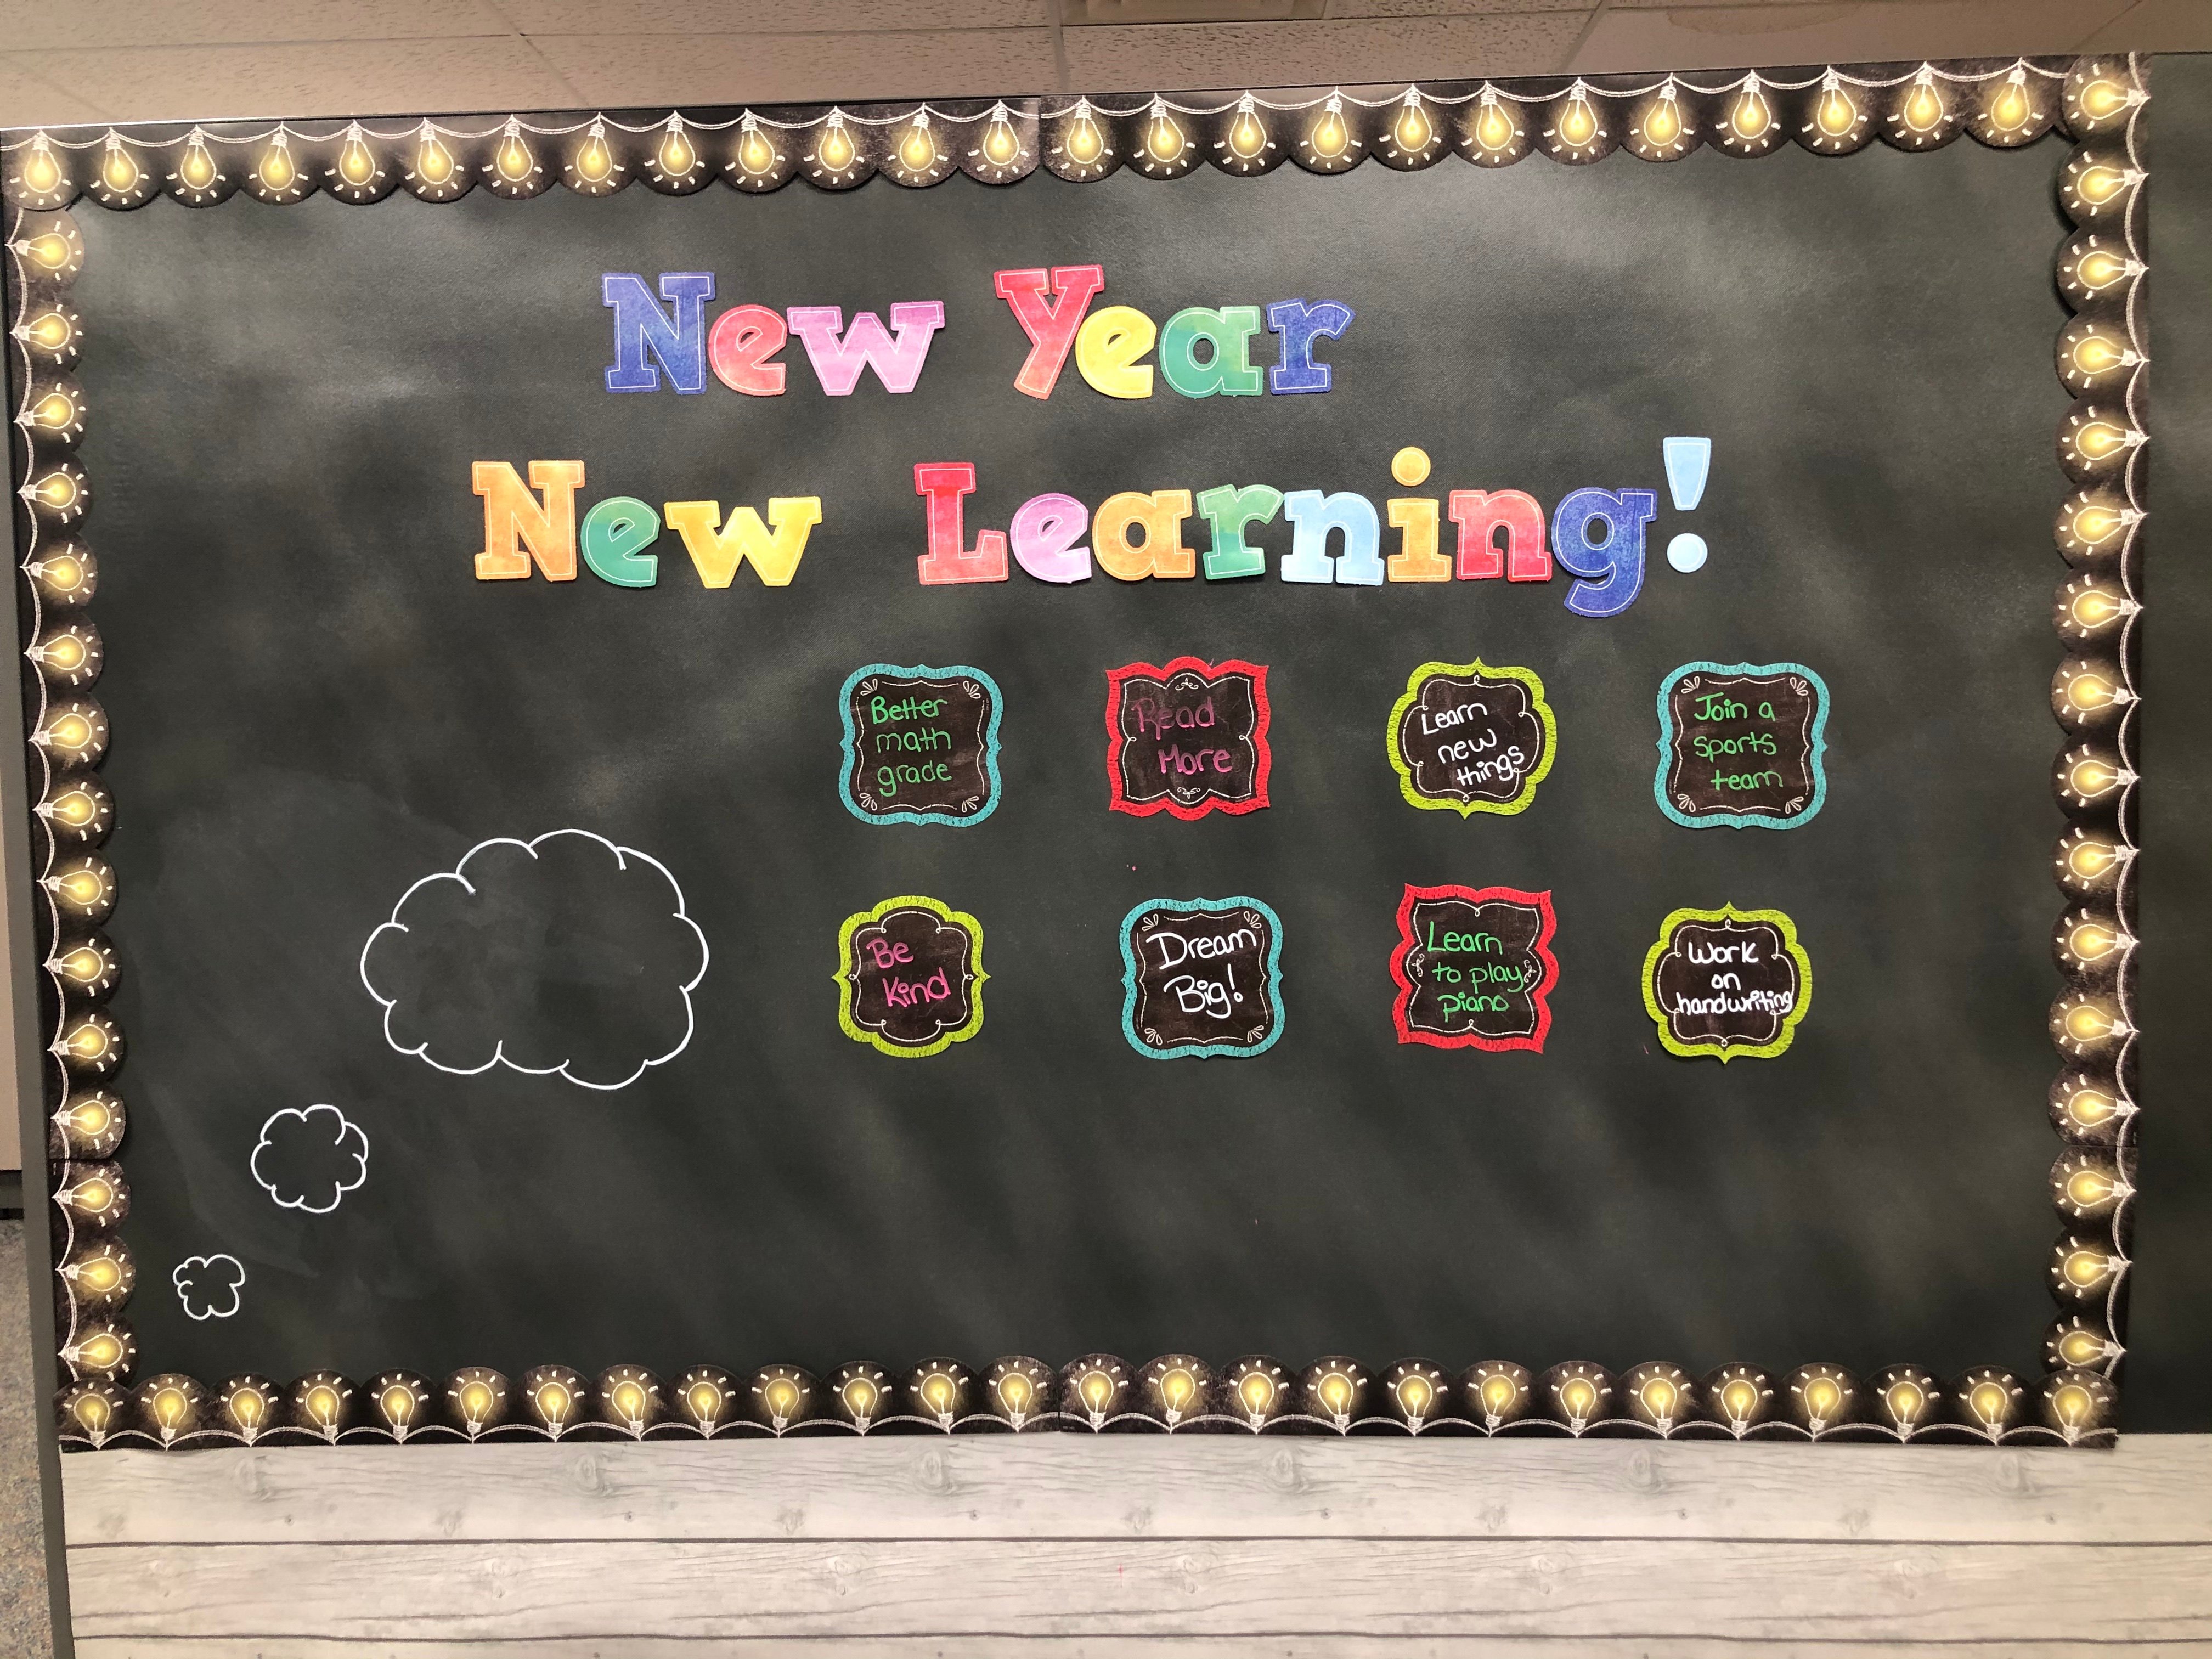 New Year
New Learning!
Better
math
grade
Read
More
Learn
new
things
Join a
sports
team
Be
Kind
Dream
Big!
Learn
to play
piano
Work
on
handwriting